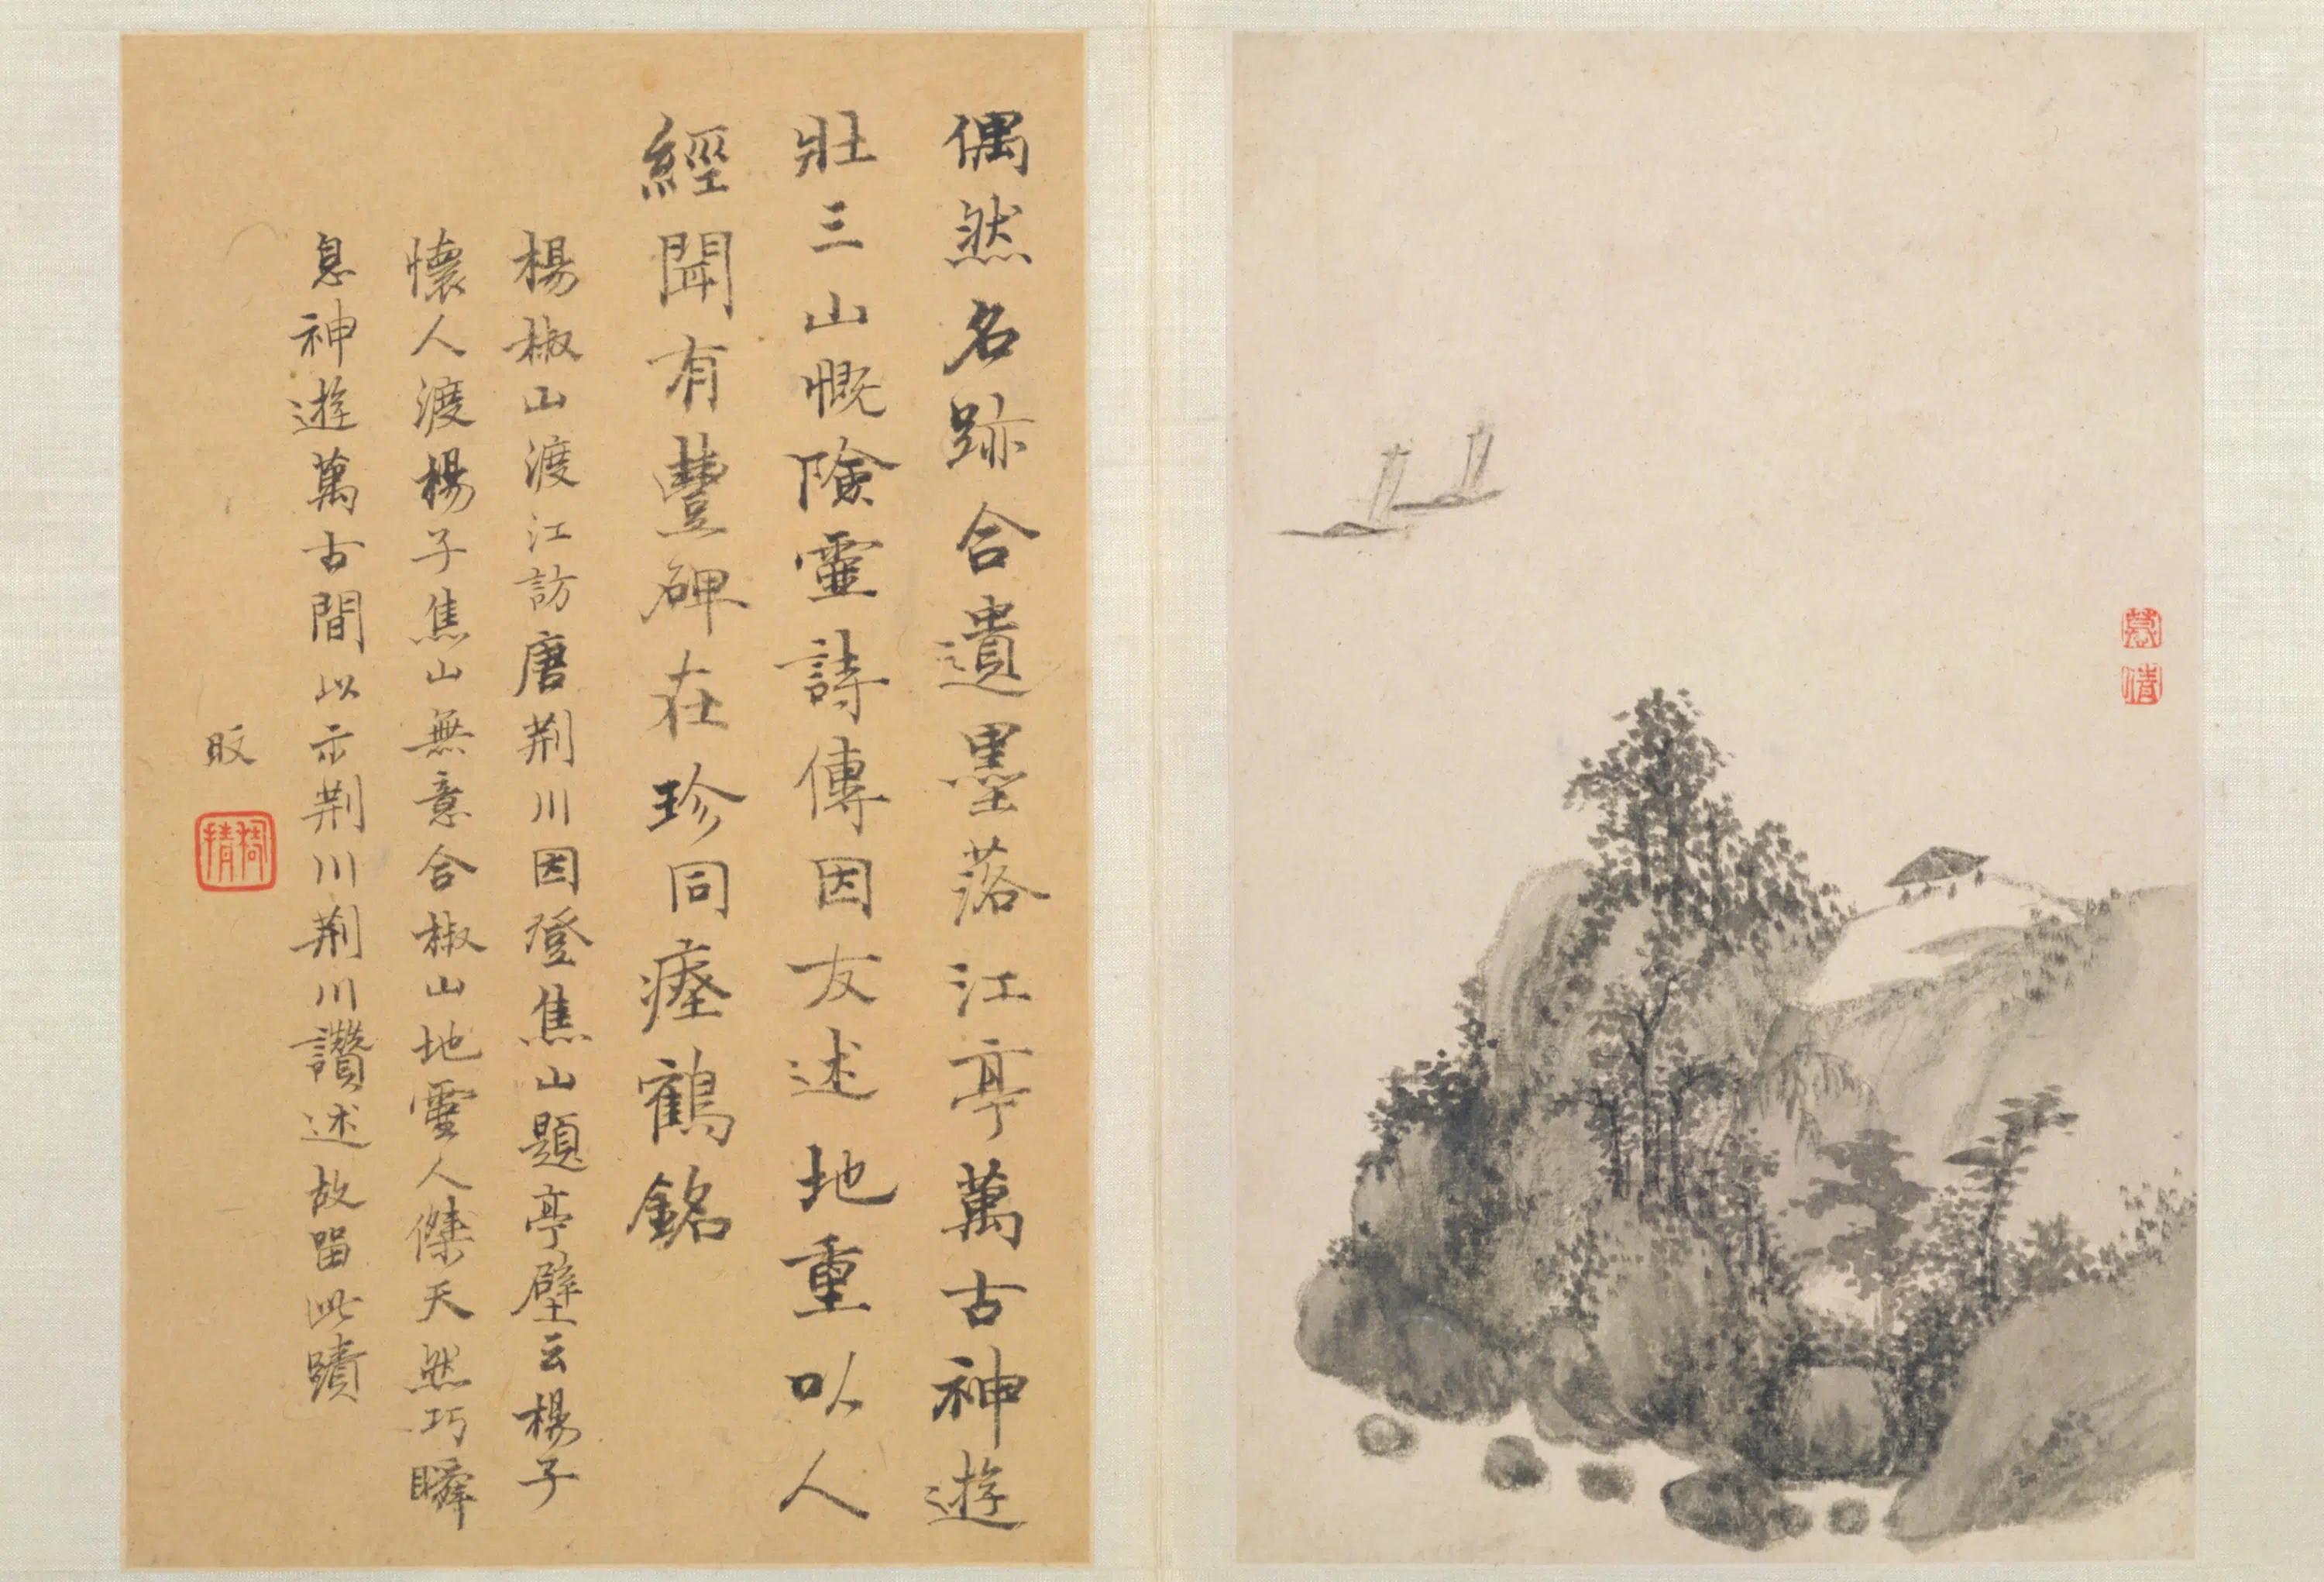 慕
倩
偶然名跡合遺墨落江亭萬古神遊
壯三山慨險靈詩傳因友述地重以人
經聞有豐碑在珍同瘞鶴銘
楊椒山渡江訪唐荆川因登焦山題亭壁云楊子
懷人渡楊子焦山無意合椒山地靈人傑天然巧瞬
息神遊萬古間以示荆川荆川讚述故畱此蹟